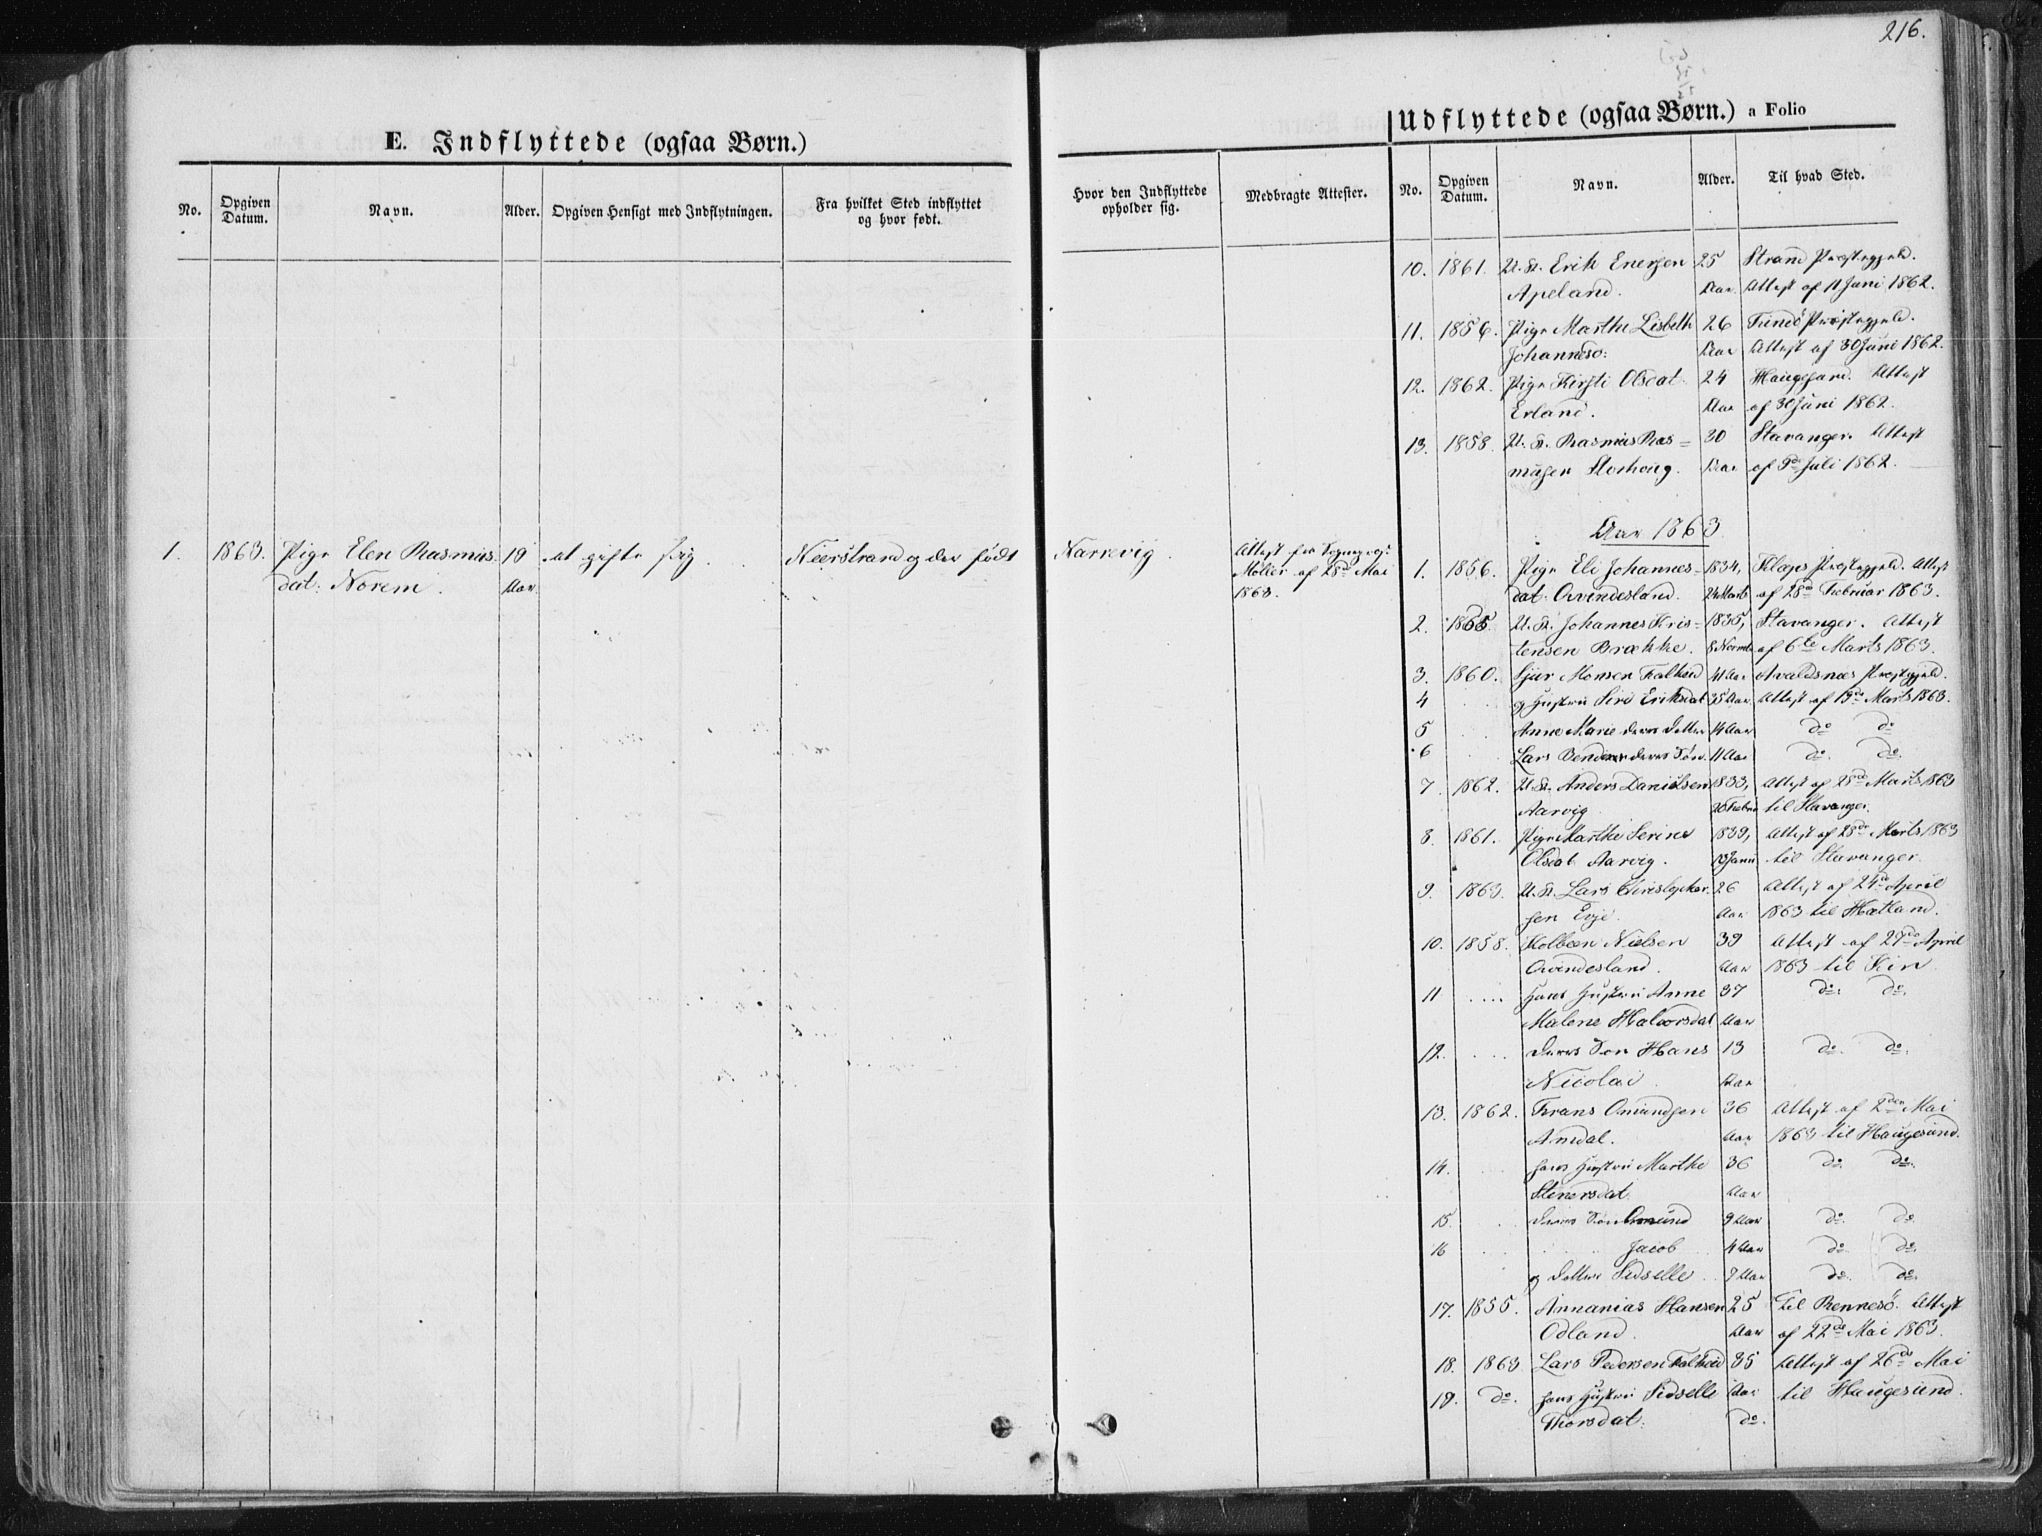 216.
E. Indflyttede (ogsaa Børn.)
No.
Opgiven Datum.
Navn.
Alder.
Opgiven Hensigt med Indflytningen.
Fra hvilket Sted indflyttet og hvor født.
1. 1863. Pige Elen Rasmus- 19 at gifte sig. Neerstrand og der født
dat: Norem. Aar
Udflyttede (ogsaa Børn.) a Folio
Hvor den Indflyttede opholder sig.
Medbragte Attester.
No.
Opgiven Datum.
Navn.
Alder.
Til hvad Sted.
Narrevig. Attest fra Sognepr:
Møller af 28de Mai
1863.
10. 1861. U. K. Erik Enersen 25 Strand Præstegjeld.
Apeland. Aar Attest af 11 Juni 1862.
11. 1856. Pige Marthe Lisbeth 26 Findö Præstegjeld.
Johannesd: Aar Attest af 30 Juni 1862.
12. 1862. Pige Kirsti Olsdat. 24 Haugesund. Attest
Erland. Aar af 30 Juni 1862.
13. 1858. U. K. Rasmus Ras- 30 Stavanger. Attest
musen Storhoug. Aar af 9de Juli 1862.
Aar 1863
1. 1856. Pige Eli Johannes- 1834, Klæps Præstegjeld. Attest
dat. Qvindesland. Marts af 28de Februar 1863.
2. 1865. U. K. Johannes Kris- 1835, Stavanger. Attest
tensen Brække. 8 Novmb af 6te Marts 1863.
3. 1860. Sjur Monsen Falkeid 41 Aar Avaldsnæs Præstegjeld.
4 og Hustru Siri Eriksdat 35 Aar Attest af 19de Marts 1863.
5 Anne Marie deres Datter 14 Aar do do
6 Lars deres Søn. 11 Aar do. do.
7. 1862. U. K. Anders Danielsen 1833, Attest af 28de Marts 1863
Aarvig. Februar til Stavanger.
8. 1861. Pige Marthe Serine 1839, Attest af 28de Marts 1863
Olsdat. Aarvig. til Stavanger.
9. 1863. U. K. Lars Christopher- 26 Attest af 24de April
sen Erje. Aar 1863 til Hetland.
10. 1858. Kolbeen Nielsen 39 Attest af 29de April
Qvindesland. Aar 1863 til Kin
11 .... Hans Hustru Anne 37 do. do.
Malene Halvorsdat Aar
12. ... Deres Søn Hans 13 do. do.
Nicolai. Aar
13. 1862. Frans Omundsen 36 Attest af 2den Mai
Amdal. Aar 1863 til Haugesund.
14. hans Hustru Marthe 36 do. do.
Stenersdat. Aar
15 deres Søn Omund 9 Aar do. do.
16 Jacob 4 Aar do. do.
og Datter Sidselle 7 Aar do. do.
17. 1855. Annanias Hansen 25 til Rennesö. Attest
Odland. Aar af 22de Mai 1863.
18. 1863. Lars Pedersen Falkeid 35 Attest af 26de Mai
19. do. hans Hustru Sidselle Aar til Haugesund.
Thorsdat. do.